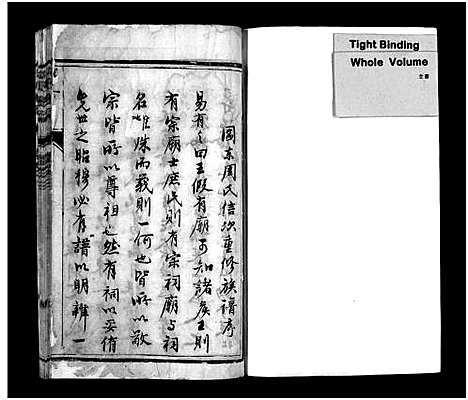 Tight Binding
Whole Volume
全書
周氏重修族譜序
易有之曰王假有廟可知諸侯王則
有宗廟士庶民則有宗祠廟与祠
名雖殊而義則一何也皆所以敬
宗皆所以尊祖也然有祠以妥侑
先世之昭穆必有譜以明辨一